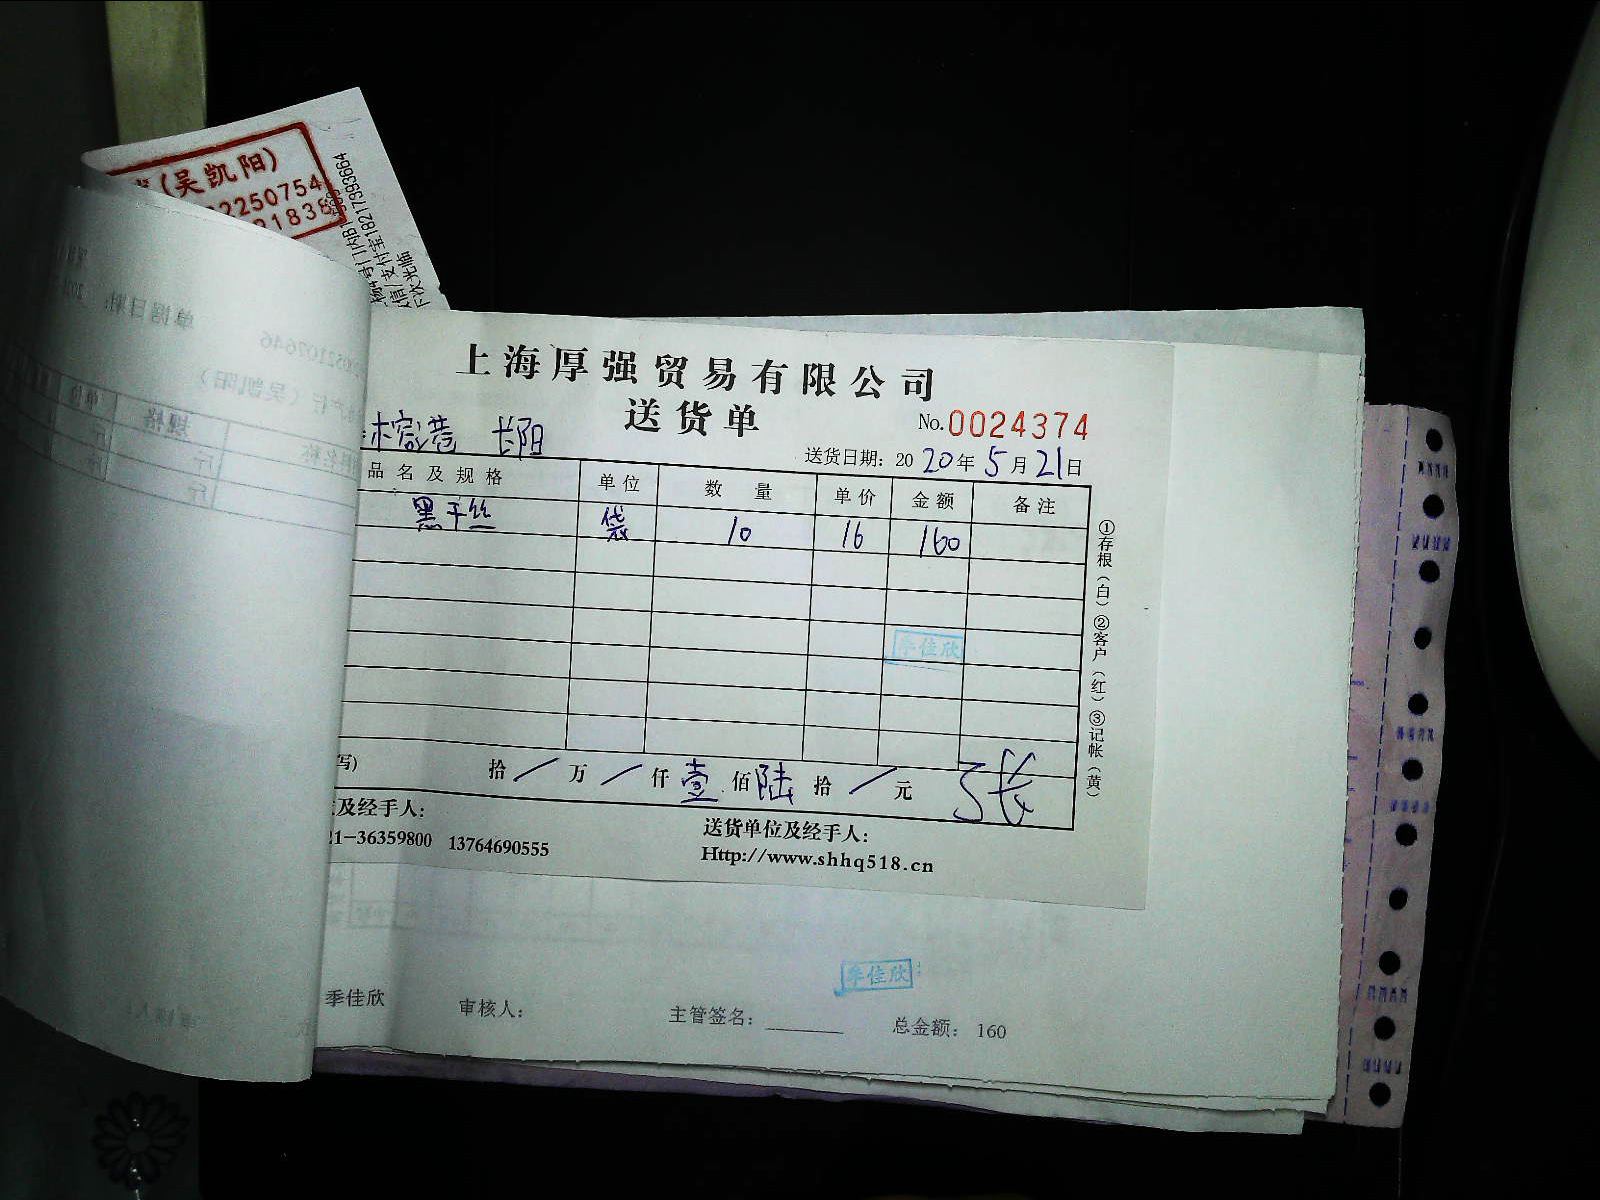 (吴凯阳)
2250754
21838
支付宝18217393664
下次光临
上海厚强贸易有限公司
送货单
No.0024374
木容巷 长阳
送货日期：2020年5月21日
品名及规格 单位 数量 单价 金额 备注
黑干丝 袋 10 16 160
①存根（白）②客户（红）③记帐（黄）
季佳欣
写) 拾 / 万 / 仟 壹 佰 陆 拾 / 元
张
及经手人：
21-36359800 13764690555
送货单位及经手人：
Http://www.shhq518.cn
季佳欣
季佳欣 审核人： 主管签名： 总金额： 160